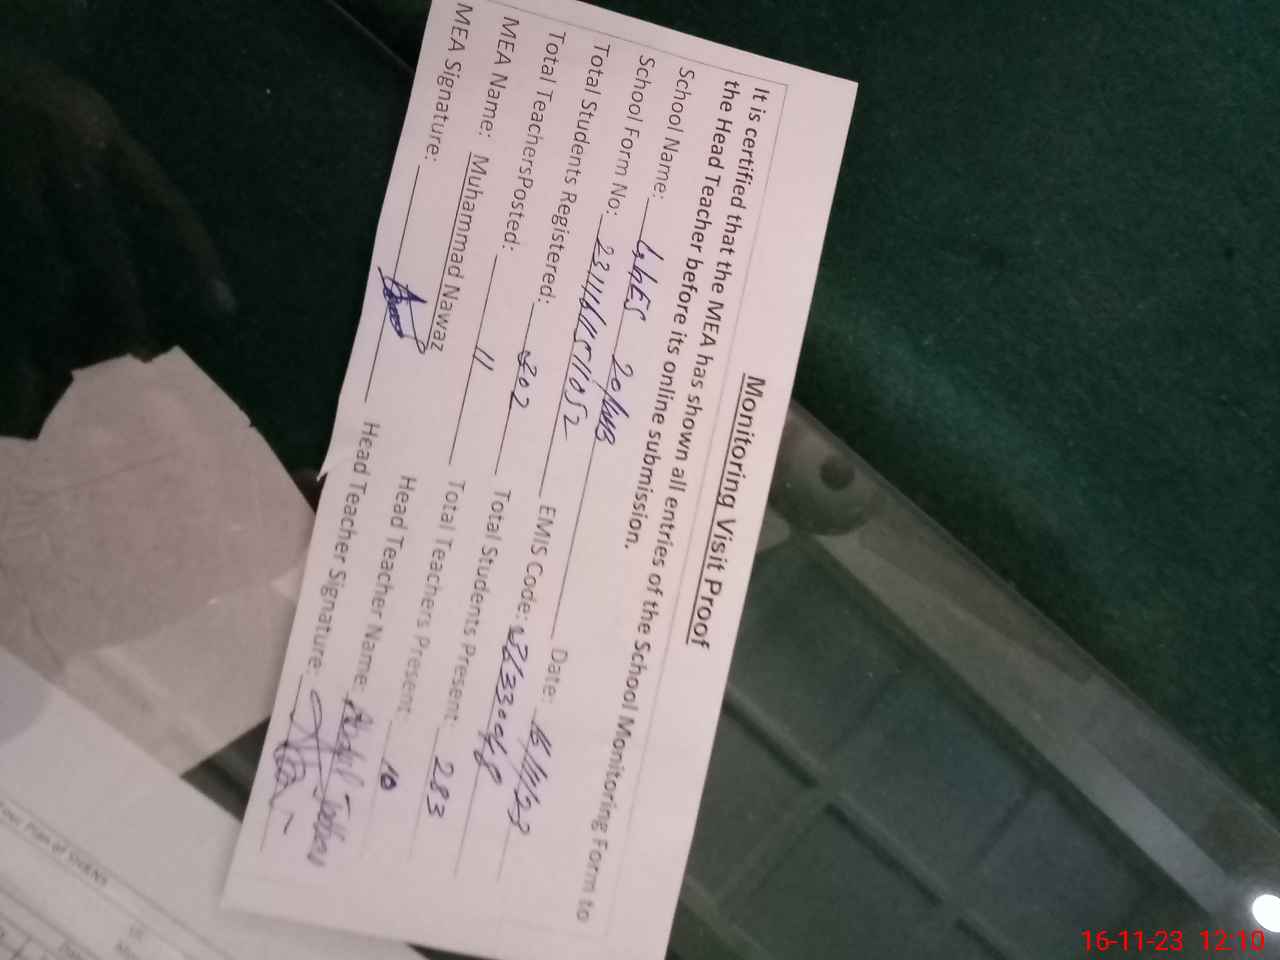 Monitoring Visit Proof
It is certified that the MEA has shown all entries of the School Monitoring Form to
the Head Teacher before its online submission.
School Name: GhES 20/WB
School Form No: 2311161511052 Date: 16/11/23
Total Students Registered: 302 EMIS Code: 37330068
Total TeachersPosted: 11 Total Students Present: 283
MEA Name: Muhammad Nawaz Total Teachers Present: 10
MEA Signature: Head Teacher Name: Abdul
Head Teacher Signature:
16-11-23 12:10